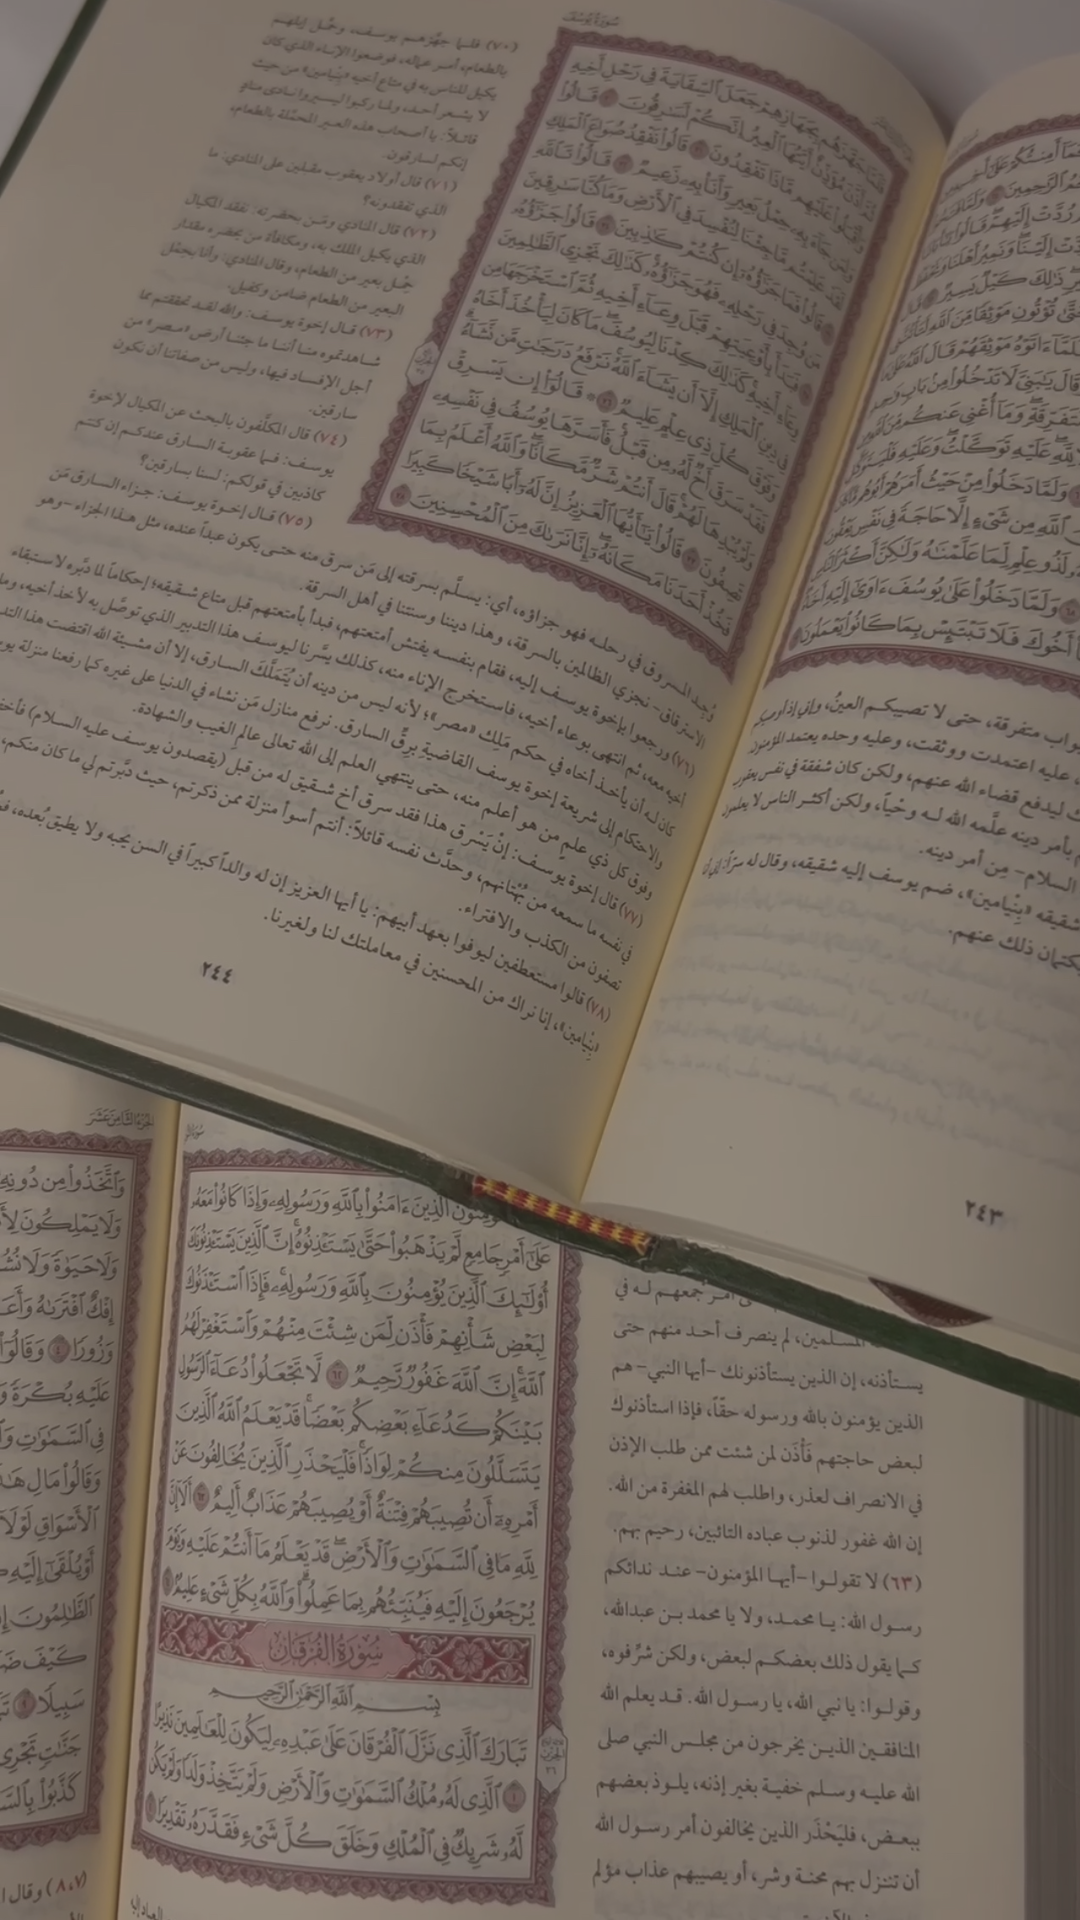 سُورَةُ يُوسُفَ
فَلَمَّا جَهَّزَهُم بِجَهَازِهِمْ جَعَلَ ٱلسِّقَايَةَ فِى رَحْلِ أَخِيهِ
ثُمَّ أَذَّنَ مُؤَذِّنٌ أَيَّتُهَا ٱلْعِيرُ إِنَّكُمْ لَسَٰرِقُونَ ٧٠ قَالُوا۟
وَأَقْبَلُوا۟ عَلَيْهِم مَّاذَا تَفْقِدُونَ ٧١ قَالُوا۟ نَفْقِدُ صُوَاعَ ٱلْمَلِكِ
وَلِمَن جَآءَ بِهِۦ حِمْلُ بَعِيرٍ وَأَنَا۠ بِهِۦ زَعِيمٌ ٧٢ قَالُوا۟ تَٱللَّهِ
لَقَدْ عَلِمْتُم مَّا جِئْنَا لِنُفْسِدَ فِى ٱلْأَرْضِ وَمَا كُنَّا سَٰرِقِينَ
٧٣ قَالُوا۟ فَمَا جَزَٰٓؤُهُۥٓ إِن كُنتُمْ كَٰذِبِينَ ٧٤ قَالُوا۟ جَزَٰٓؤُهُۥ
مَن وُجِدَ فِى رَحْلِهِۦ فَهُوَ جَزَٰٓؤُهُۥ كَذَٰلِكَ نَجْزِى ٱلظَّٰلِمِينَ
٧٥ فَبَدَأَ بِأَوْعِيَتِهِمْ قَبْلَ وِعَآءِ أَخِيهِ ثُمَّ ٱسْتَخْرَجَهَا مِن
وِعَآءِ أَخِيهِ كَذَٰلِكَ كِدْنَا لِيُوسُفَ مَا كَانَ لِيَأْخُذَ أَخَاهُ
فِى دِينِ ٱلْمَلِكِ إِلَّآ أَن يَشَآءَ ٱللَّهُ نَرْفَعُ دَرَجَٰتٍ مَّن نَّشَآءُ
وَفَوْقَ كُلِّ ذِى عِلْمٍ عَلِيمٌ ٧٦ ۞ قَالُوٓا۟ إِن يَسْرِقْ
فَقَدْ سَرَقَ أَخٌ لَّهُۥ مِن قَبْلُ فَأَسَرَّهَا يُوسُفُ فِى نَفْسِهِۦ
وَلَمْ يُبْدِهَا لَهُمْ قَالَ أَنتُمْ شَرٌّ مَّكَانًا وَٱللَّهُ أَعْلَمُ بِمَا
تَصِفُونَ ٧٧ قَالُوا۟ يَٰٓأَيُّهَا ٱلْعَزِيزُ إِنَّ لَهُۥٓ أَبًا شَيْخًا كَبِيرًا
فَخُذْ أَحَدَنَا مَكَانَهُۥٓ إِنَّا نَرَىٰكَ مِنَ ٱلْمُحْسِنِينَ ٧٨
(٧٠) فلما جهَّزهم يوسف، وحمَّل إبلهم
بالطعام، أمر عماله، فوضعوا الإناء الذي كان
يكيل للناس به في متاع أخيه «بِنْيامين» من حيث
لا يشعر أحد، ولما ركبوا ليسيروا نادى منادٍ
قائلاً: يا أصحاب هذه العير المحمَّلة بالطعام،
إنكم لسارقون.
(٧١) قال أولاد يعقوب مقبلين على المنادي: ما
الذي تفقدونه؟
(٧٢) قال المنادي ومَن بحضرته: نفقد المكيال
الذي يكيل الملك به، ومكافأة من يحضره مقدار
حِمْل بعير من الطعام، وقال المنادي: وأنا بحِمْل
البعير من الطعام ضامن وكفيل.
(٧٣) قال إخوة يوسف: والله لقد تحققتم مما
شاهدتموه منا أننا ما جئنا أرض «مصر» من
أجل الإفساد فيها، وليس من صفاتنا أن نكون
سارقين.
(٧٤) قال المكلَّفون بالبحث عن المكيال لإخوة
يوسف: فما عقوبة السارق عندكم إن كنتم
كاذبين في قولكم: لسنا بسارقين؟
(٧٥) قال إخوة يوسف: جزاء السارق مَن
وُجِد المسروق في رحله فهو جزاؤه، أي: يسلَّم بسرقته إلى مَن سرق منه حتى يكون عبداً عنده، مثل هذا الجزاء -وهو
الاسترقاق- نجزي الظالمين بالسرقة، وهذا ديننا وسنتنا في أهل السرقة.
(٧٦) ورجعوا بإخوة يوسف إليه، فقام بنفسه يفتش أمتعتهم، فبدأ بأمتعتهم قبل متاع شقيقه؛ إحكاماً لما دبَّره لاستبقاء
أخيه معه، ثم انتهى بوعاء أخيه، فاستخرج الإناء منه، كذلك يسَّرنا ليوسف هذا التدبير الذي توصَّل به لأخذ أخيه، وما
كان له أن يأخذ أخاه في حكم مَلِك «مصر»؛ لأنه ليس من دينه أن يُتَمَلَّكَ السارق، إلا أن مشيئة الله اقتضت هذا
والاحتكام إلى شريعة إخوة يوسف القاضية برِقِّ السارق. نرفع منازل مَن نشاء في الدنيا على غيره كما رفعنا منزلة
وفوق كل ذي علمٍ من هو أعلم منه، حتى ينتهي العلم إلى الله تعالى عالم الغيب والشهادة.
(٧٧) قال إخوة يوسف: إنْ يَسْرِق هذا فقد سرق أخ شقيق له من قبل (يقصدون يوسف عليه السلام)
في نفسه ما سمعه من بُهْتانهم، وحدَّث نفسه قائلاً: أنتم أسوأ منزلة ممن ذكرتم، حيث دبَّرتم لي ما كان منكم،
تصفون من الكذب والافتراء.
(٧٨) قالوا مستعطفين ليوفوا بعهد أبيهم: يا أيها العزيز إن له والداً كبيراً في السن يحبه ولا يطيق بُعده،
«بِنْيامين»، إنا نراك من المحسنين في معاملتك لنا ولغيرنا.
٢٤٤
ٱلرَّٰحِمِينَ
رُدَّتْ إِلَيْهِمْ قَالُوا۟
إِلَيْنَا وَنَمِيرُ أَهْلَنَا
ذَٰلِكَ كَيْلٌ يَسِيرٌ
تُؤْتُونِ مَوْثِقًا مِّنَ ٱللَّهِ
ءَاتَوْهُ مَوْثِقَهُمْ قَالَ ٱللَّهُ
يَٰبَنِىَّ لَا تَدْخُلُوا۟ مِنۢ بَابٍ وَٰحِدٍ
مُّتَفَرِّقَةٍ وَمَآ أُغْنِى عَنكُم مِّنَ ٱللَّهِ
عَلَيْهِ تَوَكَّلْتُ وَعَلَيْهِ فَلْيَتَوَكَّلِ
وَلَمَّا دَخَلُوا۟ مِنْ حَيْثُ أَمَرَهُمْ أَبُوهُم
ٱللَّهِ مِن شَىْءٍ إِلَّا حَاجَةً فِى نَفْسِ يَعْقُوبَ
لَذُو عِلْمٍ لِّمَا عَلَّمْنَٰهُ وَلَٰكِنَّ أَكْثَرَ
وَلَمَّا دَخَلُوا۟ عَلَىٰ يُوسُفَ ءَاوَىٰٓ إِلَيْهِ أَخَاهُ
أَخُوكَ فَلَا تَبْتَئِسْ بِمَا كَانُوا۟ يَعْمَلُونَ
متفرقة، حتى لا تصيبكم العينُ، وإني إذ أوصيكم
عليه اعتمدت ووثقت، وعليه وحده يعتمد المؤمنون.
ليدفع قضاء الله عنهم، ولكن كان شفقة في نفس يعقوب
بأمر دينه علَّمه الله له وحْياً، ولكن أكثر الناس لا يعلمون
السلام- مِن أمر دينه.
شقيقه «بِنْيامين»، ضم يوسف إليه شقيقه، وقال له سرّاً: إني أنا
بكتمان ذلك عنهم.
٢٤٣
ٱلَّذِينَ ءَامَنُوا۟ بِٱللَّهِ وَرَسُولِهِۦ وَإِذَا كَانُوا۟ مَعَهُۥ
عَلَىٰٓ أَمْرٍ جَامِعٍ لَّمْ يَذْهَبُوا۟ حَتَّىٰ يَسْتَـْٔذِنُوهُ إِنَّ ٱلَّذِينَ يَسْتَـْٔذِنُونَكَ
أُو۟لَٰٓئِكَ ٱلَّذِينَ يُؤْمِنُونَ بِٱللَّهِ وَرَسُولِهِۦ فَإِذَا ٱسْتَـْٔذَنُوكَ
لِبَعْضِ شَأْنِهِمْ فَأْذَن لِّمَن شِئْتَ مِنْهُمْ وَٱسْتَغْفِرْ لَهُمُ
ٱللَّهَ إِنَّ ٱللَّهَ غَفُورٌ رَّحِيمٌ ٦٢ لَّا تَجْعَلُوا۟ دُعَآءَ ٱلرَّسُولِ
بَيْنَكُمْ كَدُعَآءِ بَعْضِكُم بَعْضًا قَدْ يَعْلَمُ ٱللَّهُ ٱلَّذِينَ
يَتَسَلَّلُونَ مِنكُمْ لِوَاذًا فَلْيَحْذَرِ ٱلَّذِينَ يُخَالِفُونَ عَنْ
أَمْرِهِۦٓ أَن تُصِيبَهُمْ فِتْنَةٌ أَوْ يُصِيبَهُمْ عَذَابٌ أَلِيمٌ ٦٣ أَلَآ إِنَّ
لِلَّهِ مَا فِى ٱلسَّمَٰوَٰتِ وَٱلْأَرْضِ قَدْ يَعْلَمُ مَآ أَنتُمْ عَلَيْهِ وَيَوْمَ
يُرْجَعُونَ إِلَيْهِ فَيُنَبِّئُهُم بِمَا عَمِلُوا۟ وَٱللَّهُ بِكُلِّ شَىْءٍ عَلِيمٌ
سُورَةُ الفُرْقَانِ
بِسْمِ ٱللَّهِ ٱلرَّحْمَٰنِ ٱلرَّحِيمِ
تَبَارَكَ ٱلَّذِى نَزَّلَ ٱلْفُرْقَانَ عَلَىٰ عَبْدِهِۦ لِيَكُونَ لِلْعَٰلَمِينَ نَذِيرًا
١ ٱلَّذِى لَهُۥ مُلْكُ ٱلسَّمَٰوَٰتِ وَٱلْأَرْضِ وَلَمْ يَتَّخِذْ وَلَدًا وَلَمْ يَكُن
لَّهُۥ شَرِيكٌ فِى ٱلْمُلْكِ وَخَلَقَ كُلَّ شَىْءٍ فَقَدَّرَهُۥ تَقْدِيرًا
أمر جمعهم له في
المسلمين، لم ينصرف أحد منهم حتى
يستأذنه، إن الذين يستأذنونك -أيها النبي- هم
الذين يؤمنون بالله ورسوله حقّاً، فإذا استأذنوك
لبعض حاجتهم فَأْذَن لمن شئت ممن طلب الإذن
في الانصراف لعذر، واطلب لهم المغفرة من الله.
إن الله غفور لذنوب عباده التائبين، رحيم بهم.
(٦٣) لا تقولوا -أيها المؤمنون- عند ندائكم
رسول الله: يا محمد، ولا يا محمد بن عبدالله،
كما يقول ذلك بعضكم لبعض، ولكن شرِّفوه،
وقولوا: يا نبي الله، يا رسول الله. قد يعلم الله
المنافقين الذين يخرجون من مجلس النبي صلى
الله عليه وسلم خفية بغير إذنه، يلوذ بعضهم
ببعض، فليَحْذَر الذين يخالفون أمر رسول الله
أن تنزل بهم محنة وشر، أو يصيبهم عذاب مؤلم
الجُزْءُ الثَّامِنَ عَشَرَ
وَٱتَّخَذُوا۟ مِن دُونِهِ
وَلَا يَمْلِكُونَ
وَلَا حَيَوٰةً وَلَا
إِفْكٌ ٱفْتَرَىٰهُ
وَزُورًا ٤ وَقَالُوٓا۟
عَلَيْهِ بُكْرَةً
فِى ٱلسَّمَٰوَٰتِ
وَقَالُوا۟ مَالِ
ٱلْأَسْوَاقِ لَوْلَآ
أَوْ يُلْقَىٰٓ إِلَيْهِ
ٱلظَّٰلِمُونَ
كَيْفَ
سَبِيلًا ٩
جَنَّٰتٍ تَجْرِى
كَذَّبُوا۟
(٨،٧) وقال